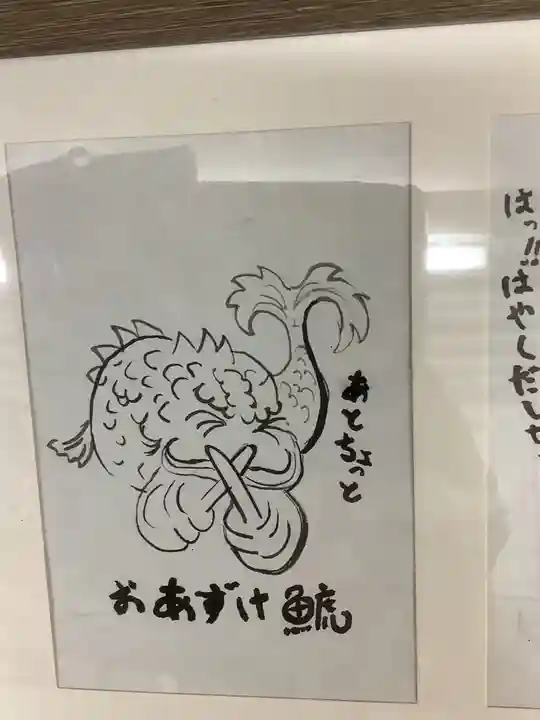 はっ!!はやしだしゃ
あとちょっと
おあずけ鯱